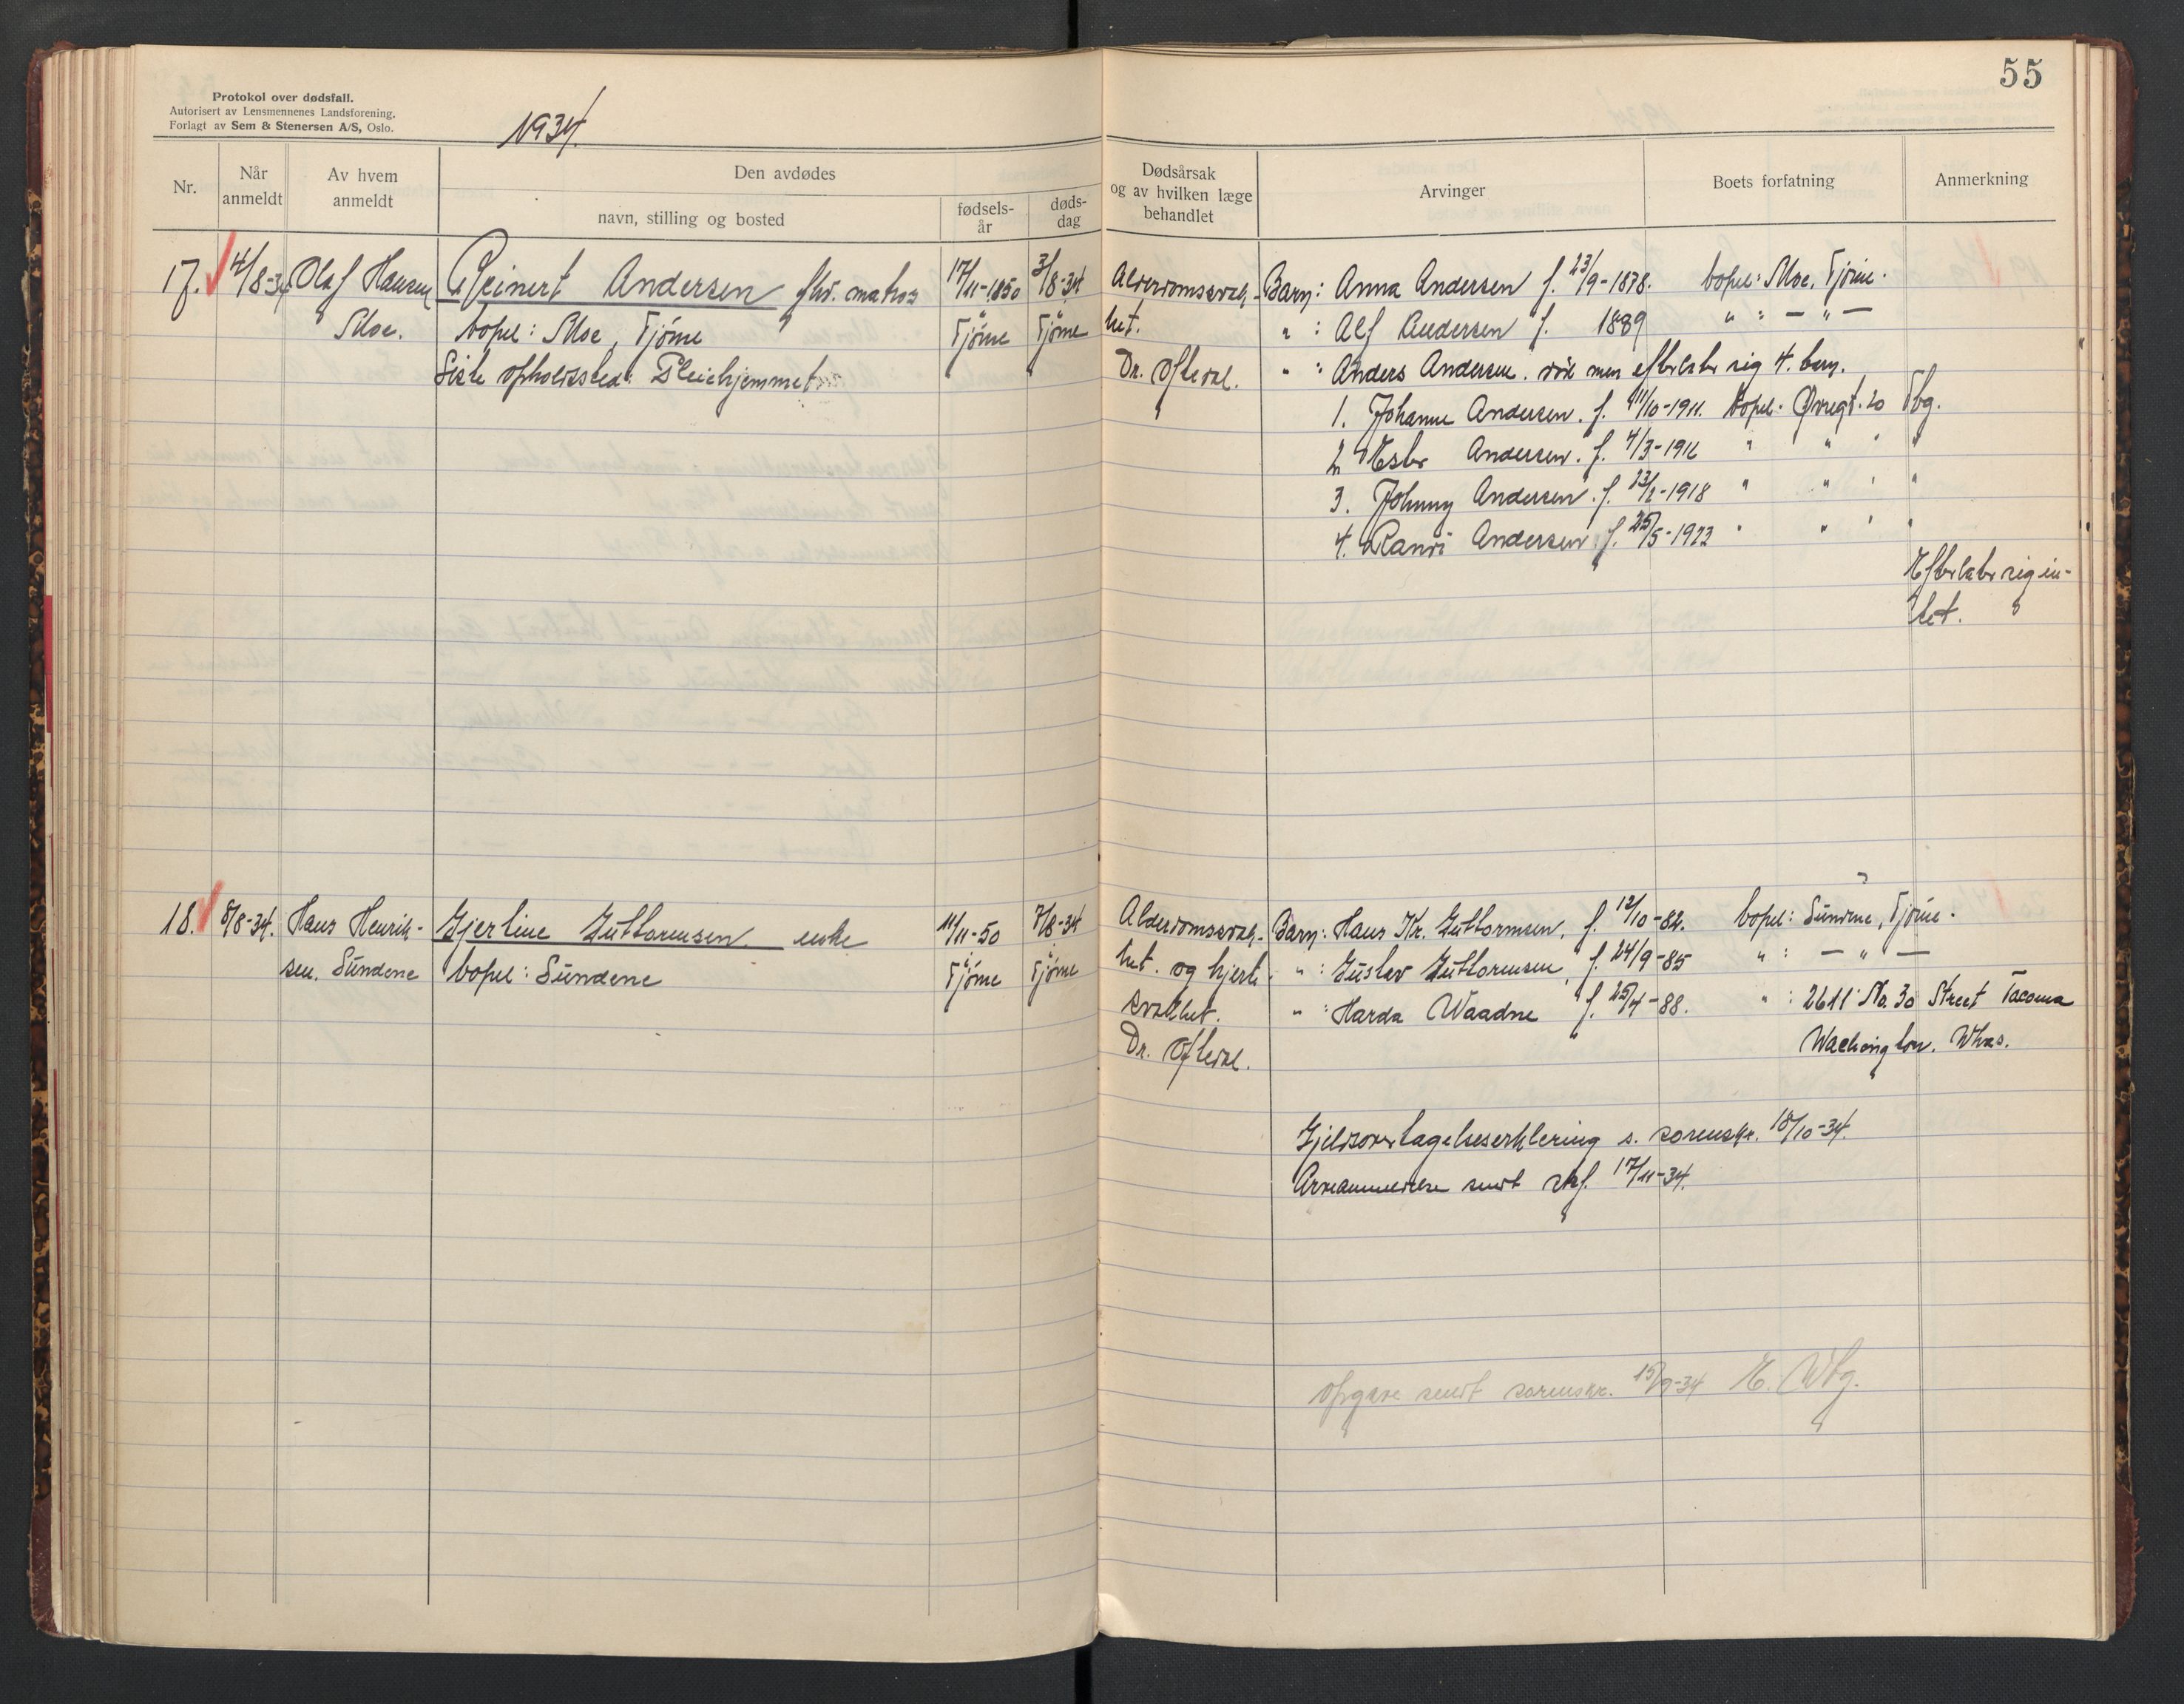 55
Protokol over dødsfall.
Autorisert av Lensmennenes Landsforening.
Forlagt av Sem & Stenersen A/S, Oslo.
1934.
Nr.
Når anmeldt
Av hvem anmeldt
Den avdødes
navn, stilling og bosted
fødsels-år
døds-dag
Dødsårsak og av hvilken læge behandlet
Arvinger
Boets forfatning
Anmerkning
17. 4/8-34 Olaf Hansen Reinert Andersen fhv. matros 17/11-1850 3/8-34 Alderdomsvak- Barn: Anna Andersen f. 23/9-1878. bopel: Moe, Tjöme.
Moe. bopel: Moe, Tjöme Tjöme Tjöme het. " : Alf Andersen f. 1889 " : — " —
Siste opholdssted: Pleiehjemmet Dr. Oftedal. " : Anders Andersen. död men efterlater sig 4. barn.
1. Johanne Andersen. f. 11/10-1911. bopel: Øvregt. 20 Tbg.
2. Ester Andersen. f. 4/3-1916 " " " "
3. Johnny Andersen. f. 23/2-1918 " " " "
4. Randi Andersen f. 25/5-1923 " " " "
Efterlater sig in-
tet.
18. 8/8-34. Hans Henrik- Gjerline Guttormsen enke 11/11-50 7/8-34 Alderdomsvak- Barn: Hans Kr. Guttormsen, f. 12/10-82. bopel: Sundene, Tjöme.
sen. Sundene bopel: Sundene Tjöme Tjöme het. og hjerte- " : Gustav Guttormsen, f. 24/9-85 " : — " —
svakhet. " : Harda Waadne f. 25/4-88. " : 2611 No. 30 Street Tacoma
Dr. Oftedal. Wachington. Whas.
Gjeldsovertagelseserklering s. sorenskr. 18/10-34.
Arveanmeldelse sendt skf. 17/11-34.
Opgave sendt sorenskr. 15/9-34 E. Wbg.